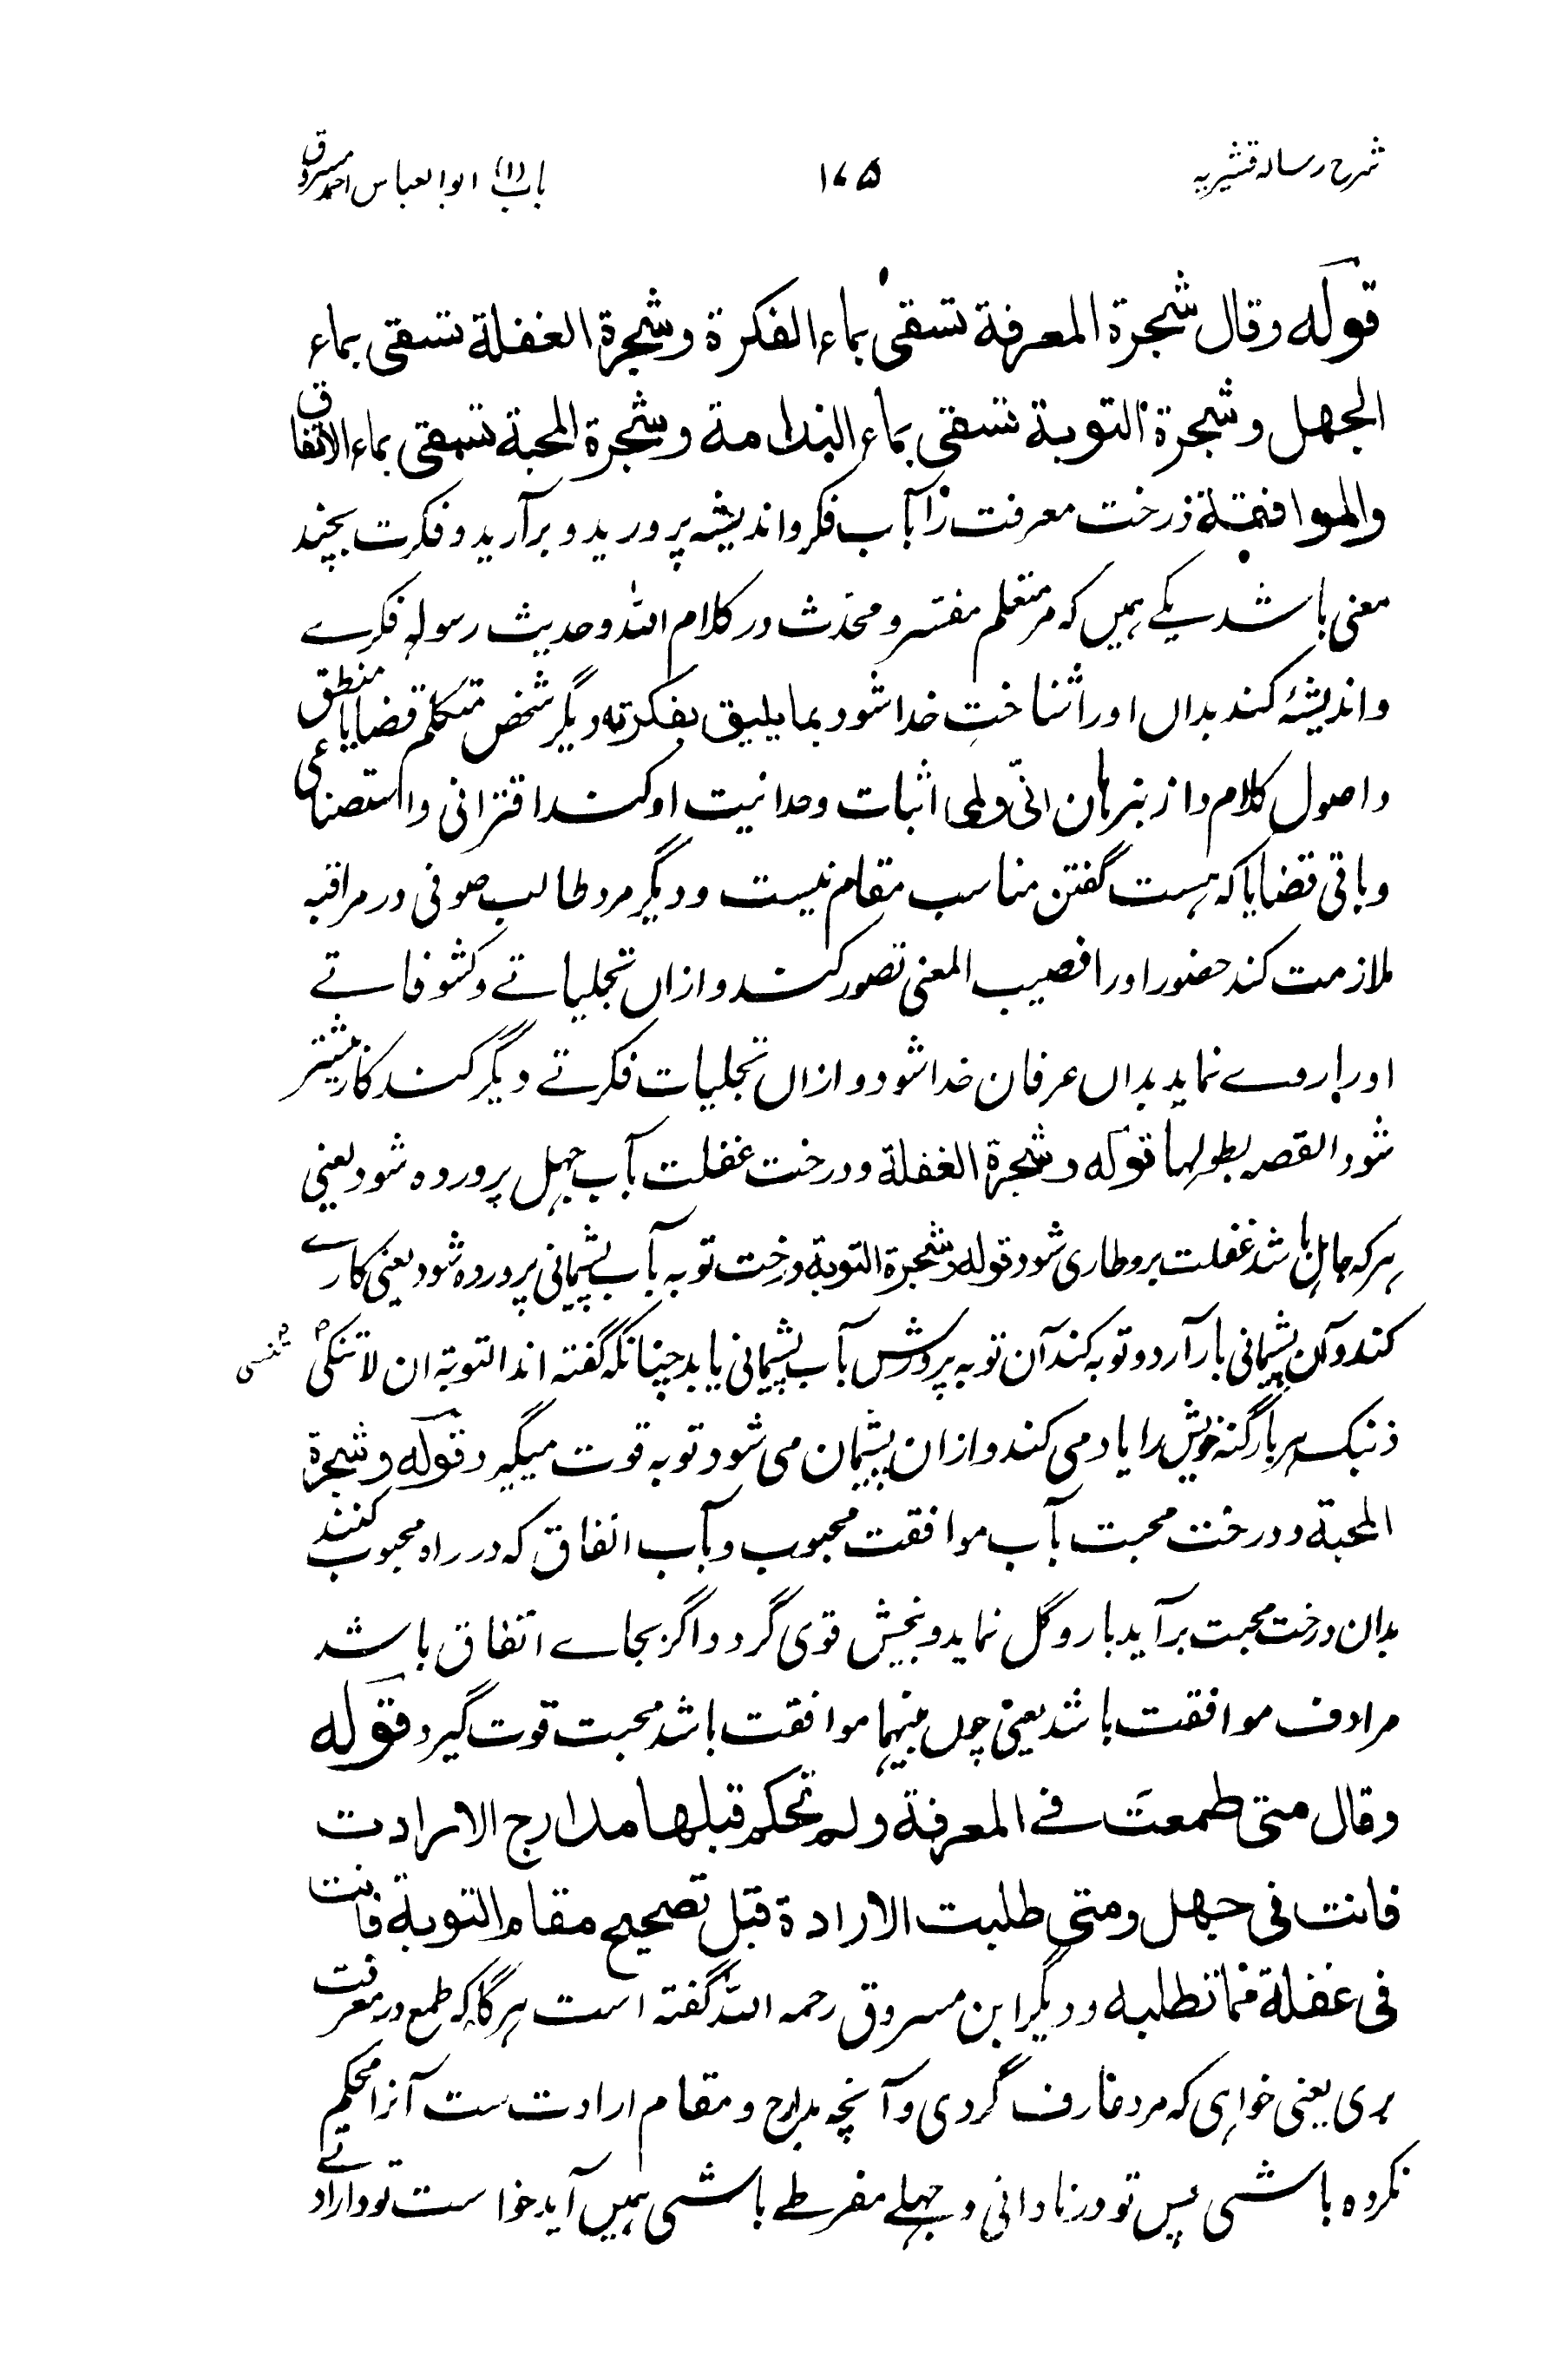 شرح رسالہ قشیریہ
۱۷۵
باب (۱) ابوالعباس احمد مسروق
قولہ وقال شجرة المعرفة تسقی بماء الفکرة وشجرة الغفلة تسقی بماء
الجھل وشجرة التوبة تسقی بماء الندامة وشجرة المحبة تسقی بماء الاتفاق
والموافقة درخت معرفت را آب فکر و اندیشہ پرورید و برآرید و فکرت بچند
معنی باشد یکے ہمیں کہ مر متعلم مفسر و محدث در کلام اللہ و حدیث رسولہ فکرے
و اندیشۂ کند بداں او را شناختِ خدا شود بما یلیق بفکرتہ دیگر شخص متکلم قضایا منطق
و اصول کلام و از برہان انّی ولمی اثبات وحدانیت او کند اقترانی و استصناعی
و باقی قضایا کہ ہست گفتن مناسب مقام نیست و دیگر مرد طالب صوفی در مراقبہ
ملازمت کند حضور او را فصیب المعنی تصور کند و ازاں تجلیاتے و کشوفاتے
او را روے نماید بداں عرفان خدا شود و ازاں تجلیات فکرتے دیگر کند کار بیشتر
شود القصہ بطولہا قولہ وشجرة الغفلة و درخت غفلت آب جہل پروردہ شود یعنی
ہر کہ جاہل باشد غفلت برو طاری شود قولہ وشجرة التوبة درخت توبہ بآب پشیمانی پروردہ شود یعنی کارے
کند و آن پشیمانی بار آرد و توبہ کند آن توبہ پرورش بآب پشیمانی یابد چنانکہ گفتہ اند التوبة ان لا تنکی
تنسی
ذنبک ہر بار گنہ خویش را یاد می کند و ازان پشیمان می شود توبہ قوت میگیرد قولہ وشجرة
المحبة و درخت محبت بآب موافقت محبوب و بآب انفاق کہ در راہ محبوب کنند
بدان درخت محبت برآید بار و گل نماید و بیخش قوی گردد و اگر بجاے اتفاق باشد
مرادف موافقت باشد یعنی چوں بینہما موافقت باشد محبت قوت گیرد قولہ
وقال متی طمعتَ فے المعرفة ولم تحکم قبلھا مدارج الارادت
فانت فی جھل ومتی طلبت الارادة قبل تصحیح مقام التوبة فانت
فی غفلة مما تطلبه و دیگر ابن مسروق رحمہ اللہ گفتہ است ہر گاہ کہ طمع در معرفت
بری یعنی خواہی کہ مرد عارف گردی و آنچہ مدارج و مقام ارادت ست آنرا محکم
نکردہ باشی پس تو در نادانی و جہلے مفرطے باشی ہمیں آید خواست تو و ارادتے